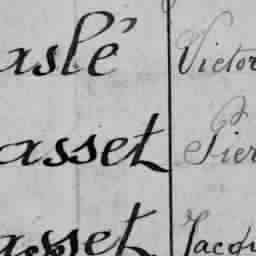 aslé Victor
asset Pier
asset Jacqu